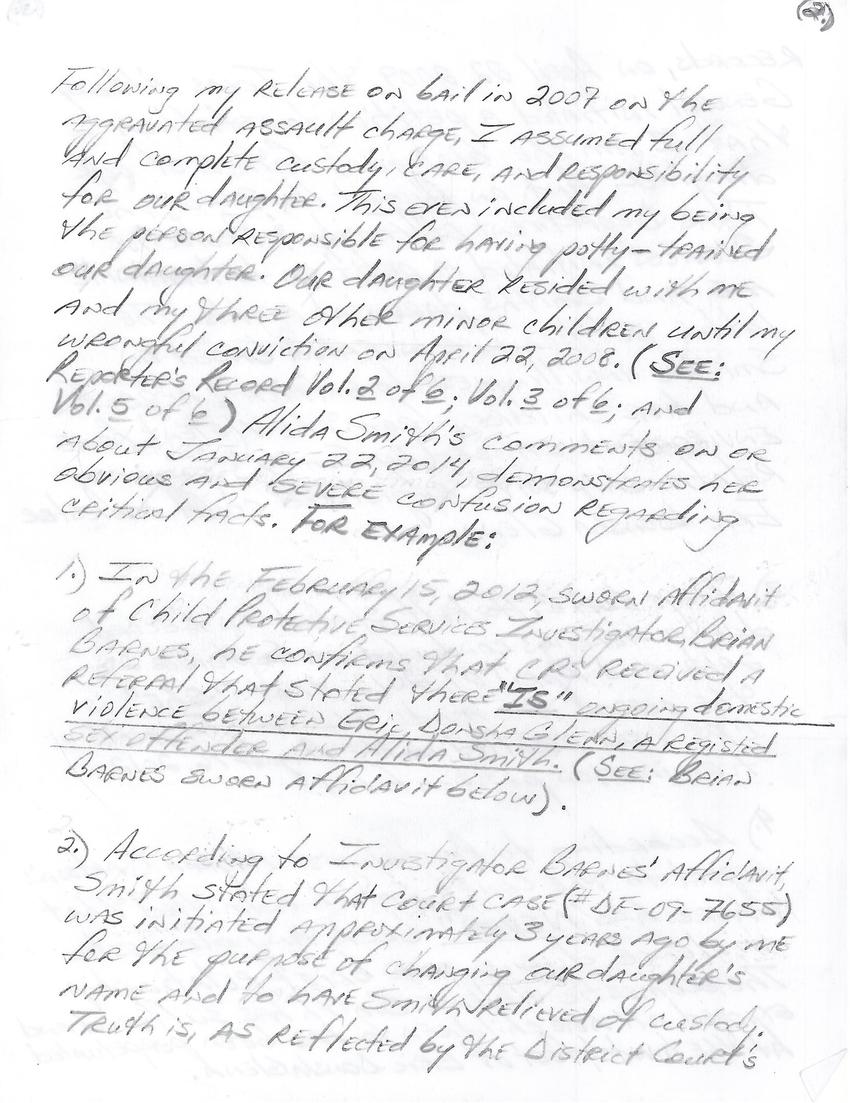 (2.)
Following my release on bail in 2007 on the
aggravated assault charge, I assumed full
and complete custody, care, and responsibility
for our daughter. This even included my being
the person responsible for having potty-trained
our daughter. Our daughter resided with me
and my three other minor children until my
wrongful conviction on April 22, 2008. (SEE:
Reporter's Record Vol. 2 of 6; Vol. 3 of 6; and
Vol. 5 of 6) Alida Smith's comments on or
about January 22, 2014, demonstrates her
obvious and severe confusion regarding
critical facts. FOR EXAMPLE:
1.) In the February 15, 2012, sworn affidavit
of Child Protective Services Investigator, Brian
Barnes, he confirms that CPS received a
referral that stated there "IS" ongoing domestic
violence between Eric, Donsha Glenn, a registed
sex offender and Alida Smith. (SEE: Brian
Barnes sworn affidavit below).
2.) According to Investigator Barnes' affidavit,
Smith stated that court case (# DF-09-7655)
was initiated approximately 3 years ago by me
for the purpose of changing our daughter's
name and to have Smith relieved of custody.
Truth is, as reflected by the District Court's